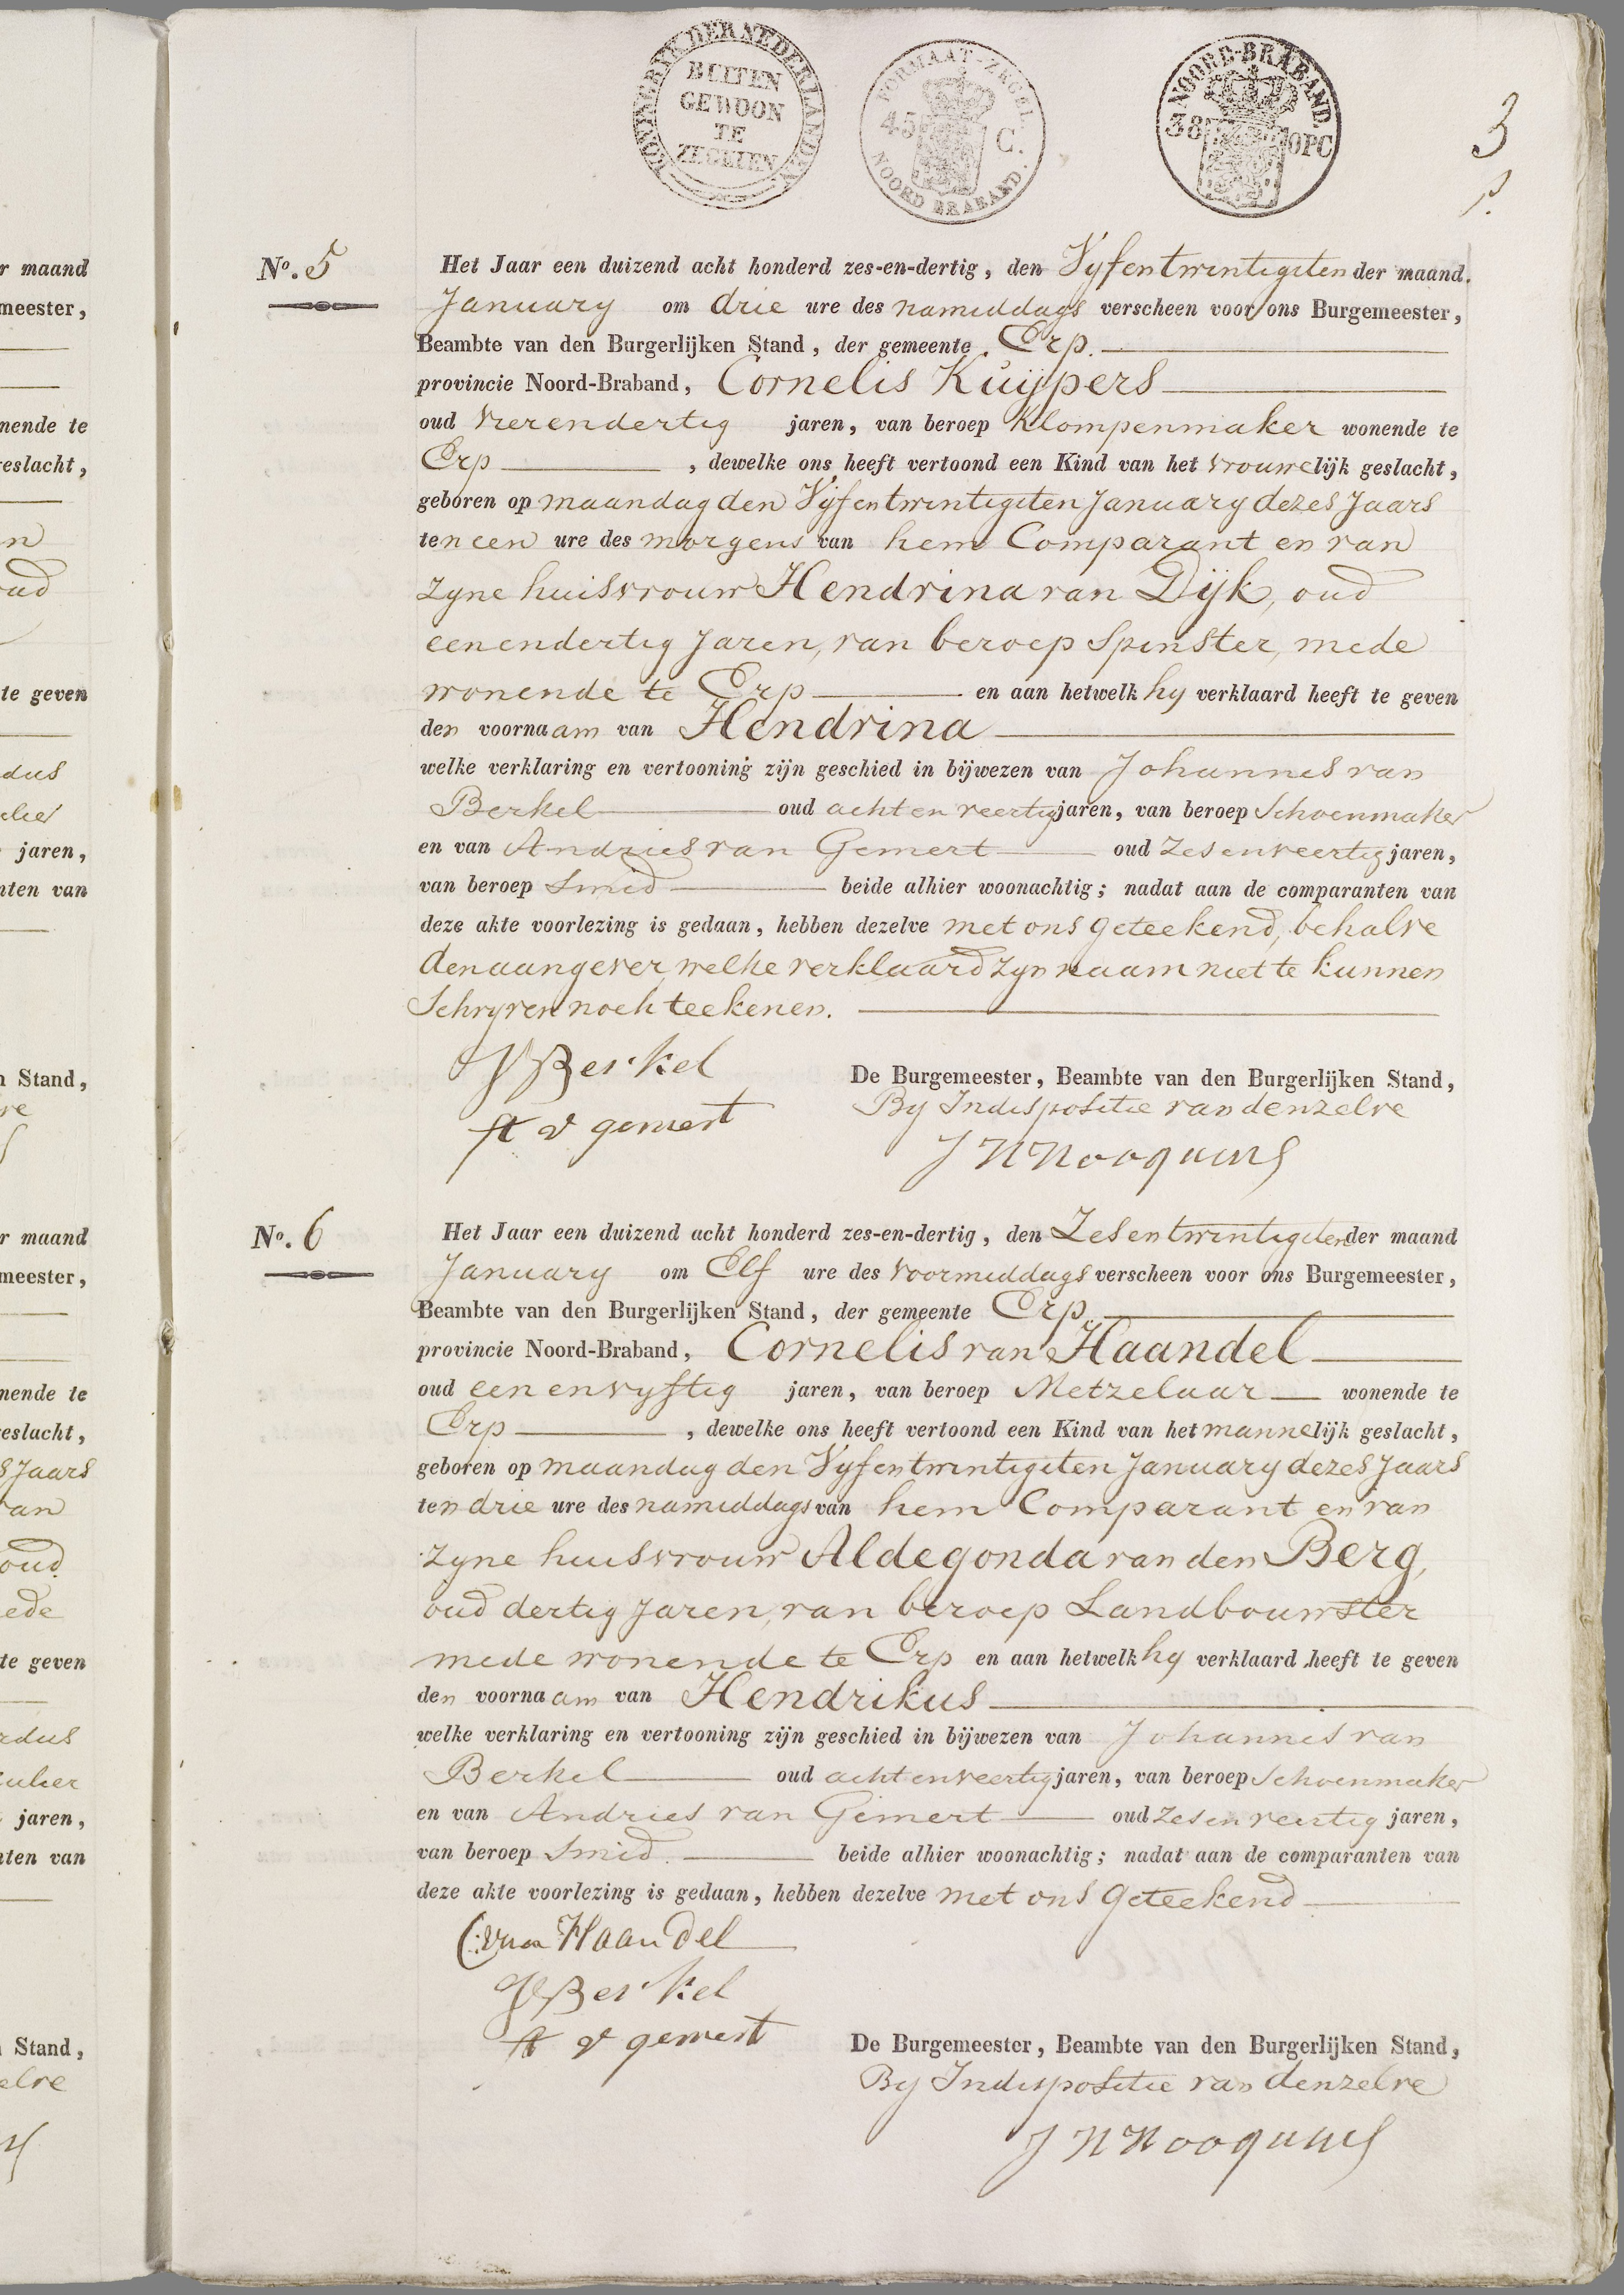 KONINGRYK DER NEDERLANDEN
BUITEN
GEWOON
TE
ZEGELEN
FORMAAT-ZEGEL.
45 C.
NOORD BRABAND.
NOORD-BRABAND.
38 OPC
3
No. 5
Het Jaar een duizend acht honderd zes-en-dertig, den Vyfentwintigsten der maand
January om drie ure des namiddags verscheen voor ons Burgemeester,
Beambte van den Burgerlijken Stand, der gemeente Erp.
provincie Noord-Braband, Cornelis Kuijpers
oud vierendertig jaren, van beroep Klompenmaker wonende te
Erp , dewelke ons heeft vertoond een Kind van het vrouwelijk geslacht,
geboren op maandag den Vijfentwintigsten January dezes Jaars
ten een ure des morgens van hem Comparant en van
zyne huisvrouw Hendrina van Dijk, oud
eenendertig Jaren, van beroep Spinster, mede
wonende te Erp en aan hetwelk hy verklaard heeft te geven
den voornaam van Hendrina
welke verklaring en vertooning zijn geschied in bijwezen van Johannes van
Berkel oud achtenveertig jaren, van beroep Schoenmaker
en van Andries van Gemert oud zesenveertig jaren,
van beroep Smid beide alhier woonachtig; nadat aan de comparanten van
deze akte voorlezing is gedaan, hebben dezelve met ons geteekend, behalve
den aangever, welke verklaard zyn naam niet te kunnen
Schryven noch teekenen.
JV Berkel
A v gemert
De Burgemeester, Beambte van den Burgerlijken Stand,
By Indispositie van denzelve
No. 6
Het Jaar een duizend acht honderd zes-en-dertig, den Zesentwintigsten der maand
January om Elf ure des voormiddags verscheen voor ons Burgemeester,
Beambte van den Burgerlijken Stand, der gemeente Erp.
provincie Noord-Braband, Cornelis van Haandel
oud een envyftig jaren, van beroep Metzelaar wonende te
Erp , dewelke ons heeft vertoond een Kind van het mannelijk geslacht,
geboren op maandag den Vyfentwintigsten January dezes Jaars
ten drie ure des namiddags van hem Comparant en van
zyne huisvrouw Aldegonda van den Berg,
oud dertig Jaren, van beroep Landbouwster
mede wonende te Erp en aan hetwelk hy verklaard heeft te geven
den voornaam van Hendrikus
welke verklaring en vertooning zijn geschied in bijwezen van Johannes van
Berkel oud achtenveertig jaren, van beroep Schoenmaker
en van Andries van Gemert oud zesenveertig jaren,
van beroep Smid. beide alhier woonachtig; nadat aan de comparanten van
deze akte voorlezing is gedaan, hebben dezelve met ons geteekend
C: van Haandel
JV Berkel
A v gemert
De Burgemeester, Beambte van den Burgerlijken Stand,
By Indispositie van denzelve